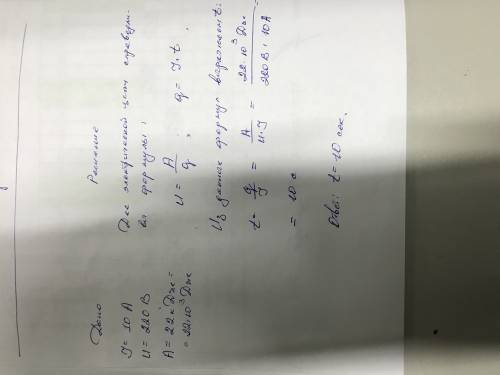 Дано
I = 10 А
U = 220 В
А = 22 кДж =
= 22·10³ Дж
Решение
Для электрической цепи справедли-
вы формулы:
U = А/q , q = I·t.
Из данных формул выражаем t:
t = q/I = А/U·I = 22·10³ Дж/220 В·10А =
= 10 с
Ответ: t = 10 сек.